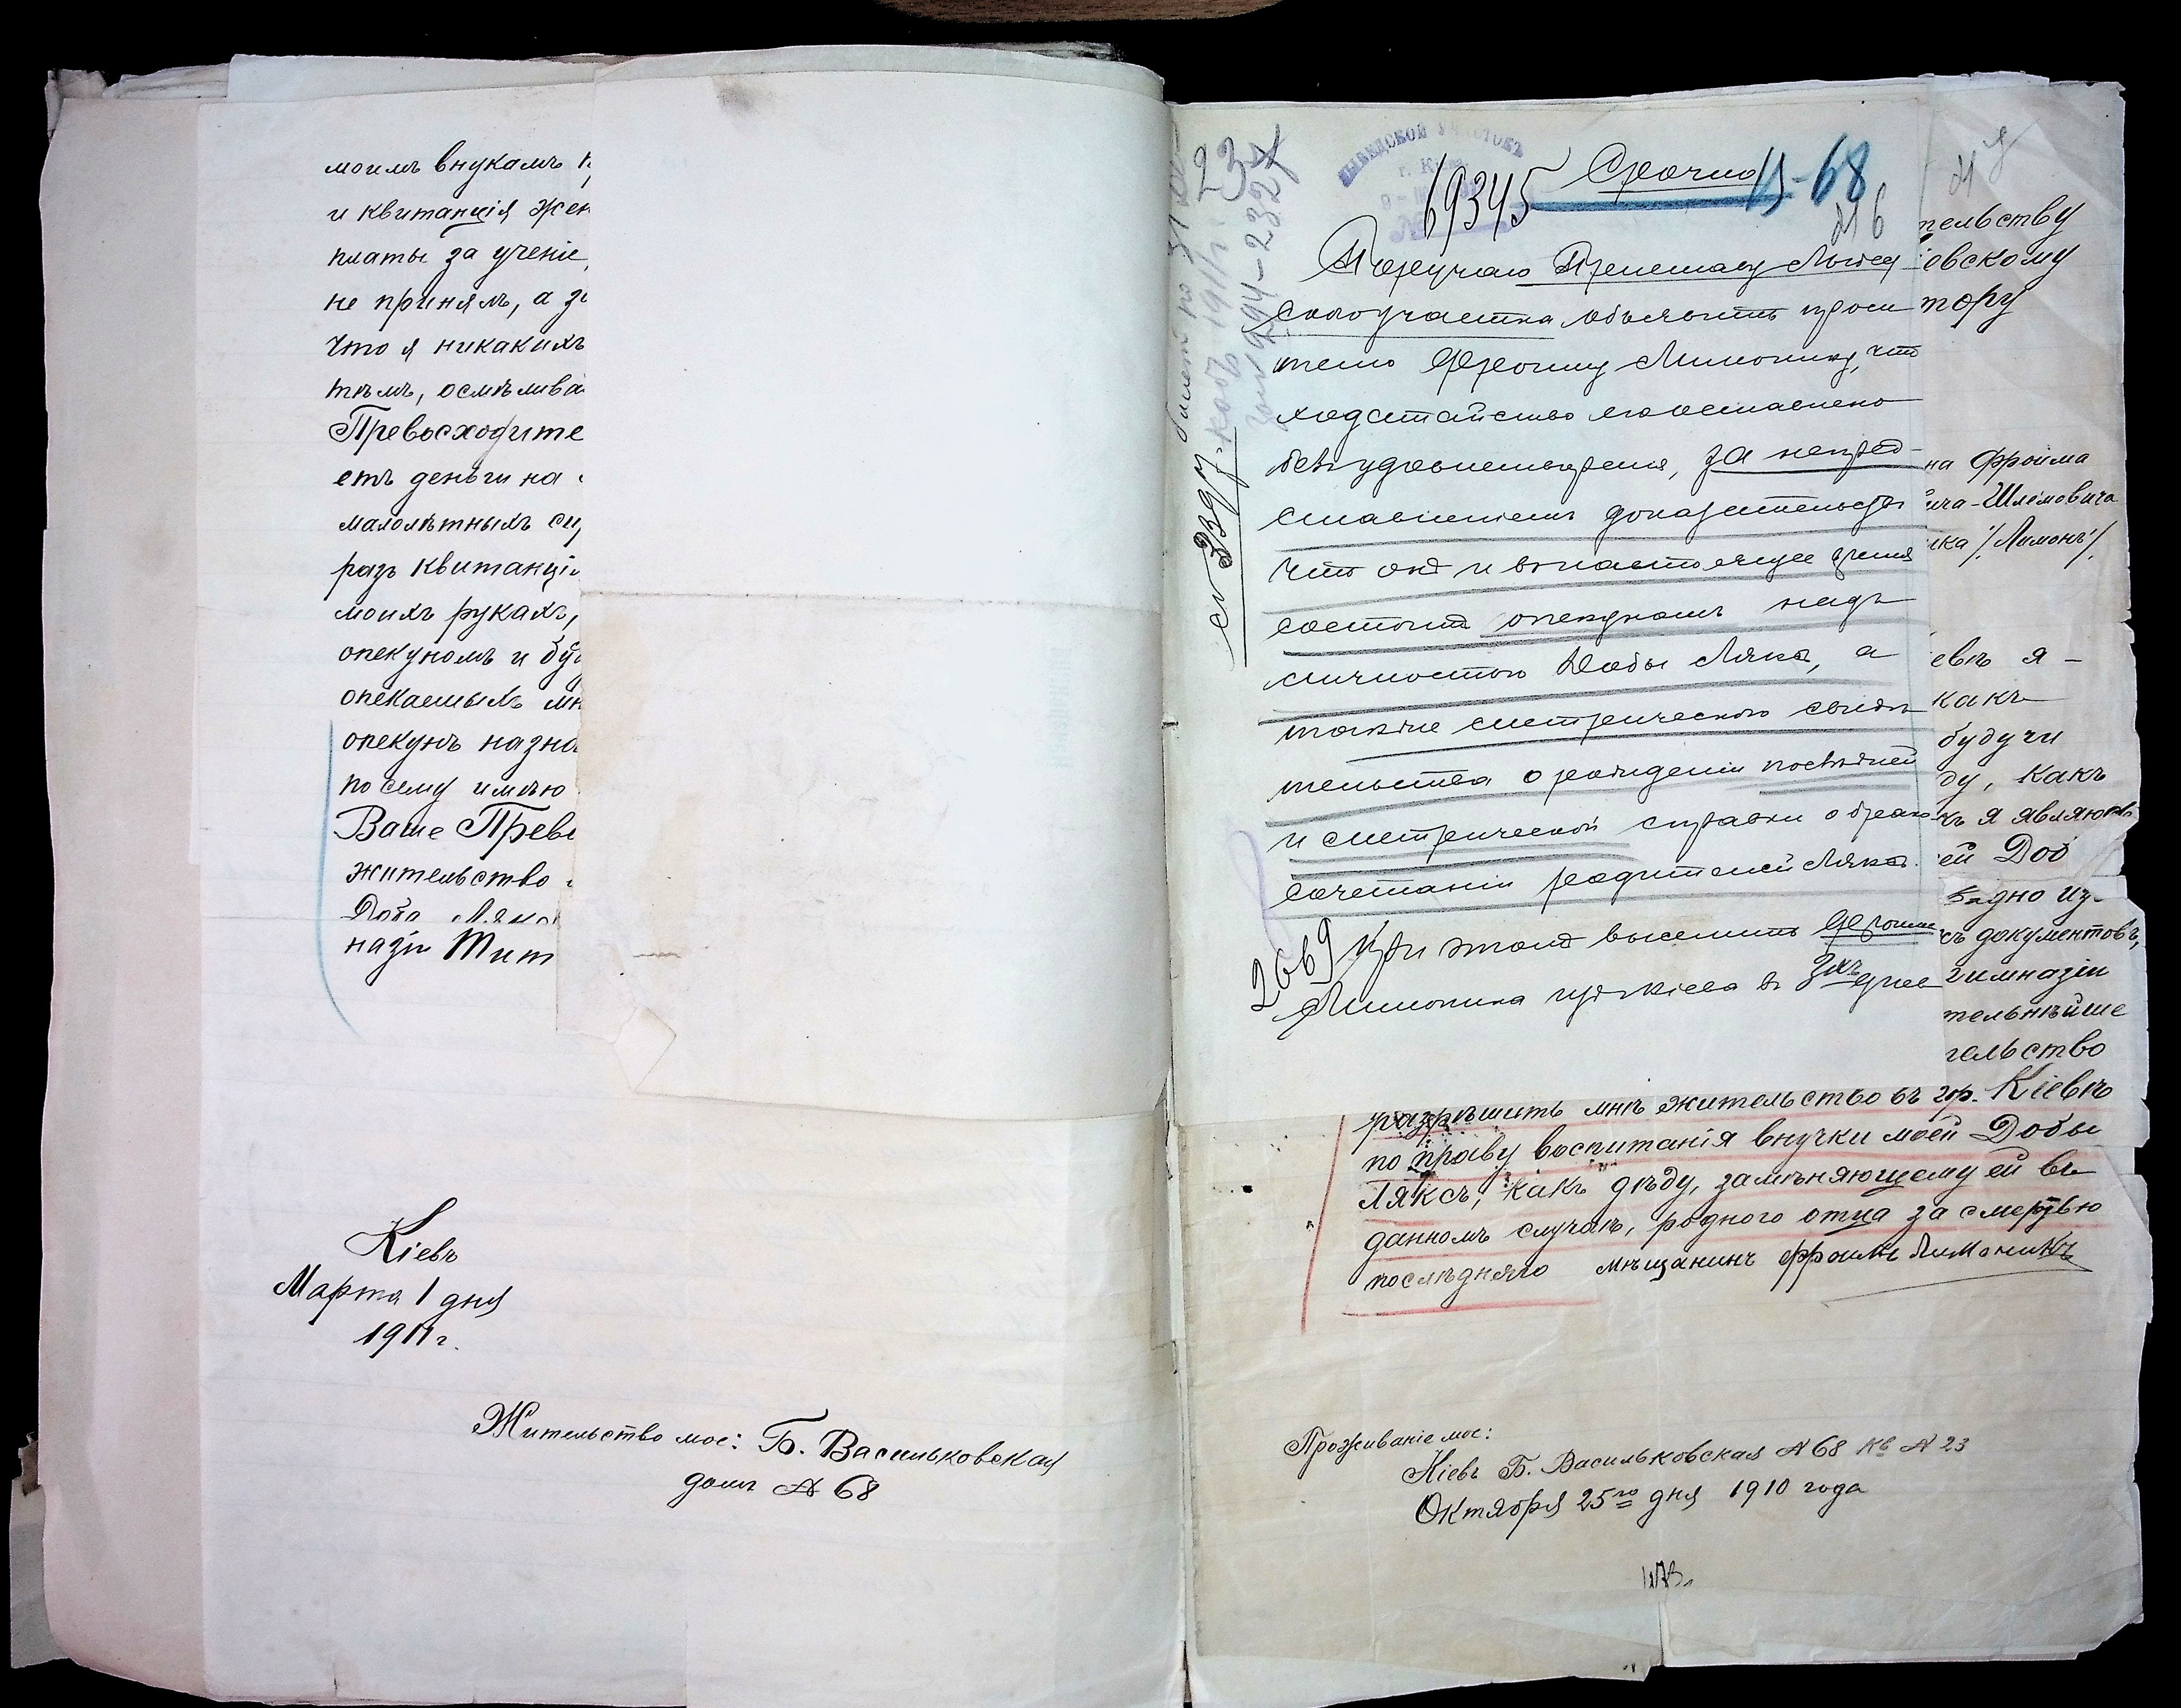 моимъ внукамъ
и квитанція Жен
платы за ученіе,
не принялъ, а з
что я никакихъ
тѣмъ, осмѣлива
Превосходите
етъ деньги на
малолѣтныхъ си
разъ квитанці
моихъ рукахъ,
опекуномъ и бу
опекаемыхъ мн
опекунъ назна
по сему имѣю
Ваше Прево
жительство
Доба Лякс
назіи Тит
Кіевъ
Марта 1 дня
1911 г.
Жительство мое: Б. Васильковская
домъ № 68
23
ст 339
Срочно
69345
11-68
Поручаю Приставу Лыбед
скаго участка объявить проси
телю Фроиму Лимонику, что
ходатайство его оставлено
безъ удовлетворенія, за непред-
ставленіемъ доказательствъ
что онъ и въ настоящее время
состоитъ опекуномъ надъ
личностью Добы Ляксъ, а
также метрическаго свидѣ
тельства о рожденіи послѣдней
и метрической справки о брако
сочетаніи родителей Ляксъ.
2669 При этомъ выселить Фроима
Лимоника изъ Кіева въ 3хъ дне
тельству
овскому
тору
на Фроима
ича-Шлёмовича
ика /Лимонъ/.
евѣ я -
какъ
будучи
ду, какъ
къ я являюсь
ей Доб
видно из-
съ документовъ,
гимназіи
тельнѣйше
тельство
разрѣшить мнѣ жительство въ гор. Кіевѣ
по праву воспитанія внучки моей Добы
Ляксъ, какъ дѣду, замѣняющему ей въ
данномъ случаѣ, родного отца за смертью
послѣдняго мѣщанинъ Фроимъ Лимоникъ
Проживаніе мое:
Кіевъ Б. Васильковская № 68 кв № 23
Октября 25го дня 1910 года